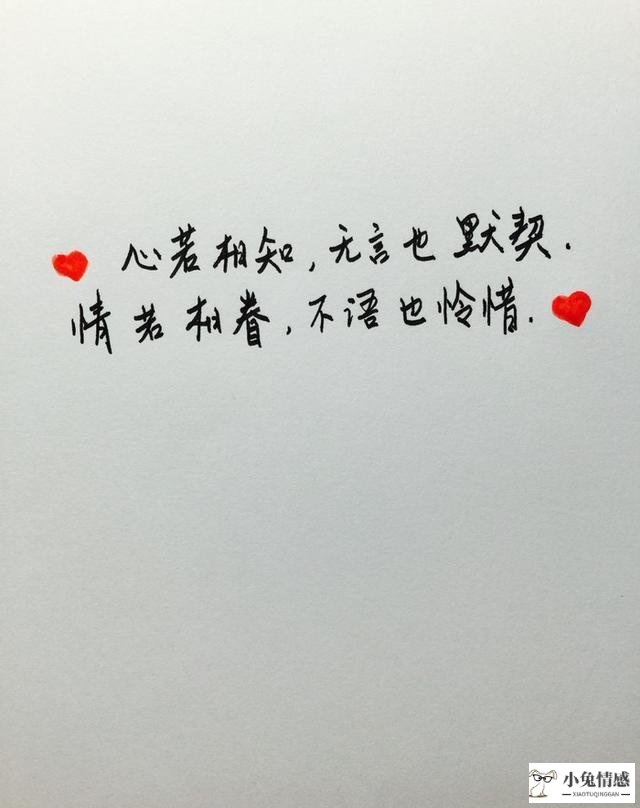 心若相知,无言也默契.
情若相眷,不语也怜惜.
小兔情感
XIAOTUQINGGAN